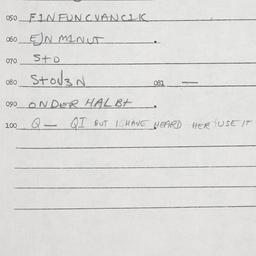 050 FINFUNCVANCIK
060 EJN MINUT .
070 Sto
080 Stov3N 081 —
090 ONDER HALBt .
100 Q — QI BUT I HAVE HEARD HER USE IT